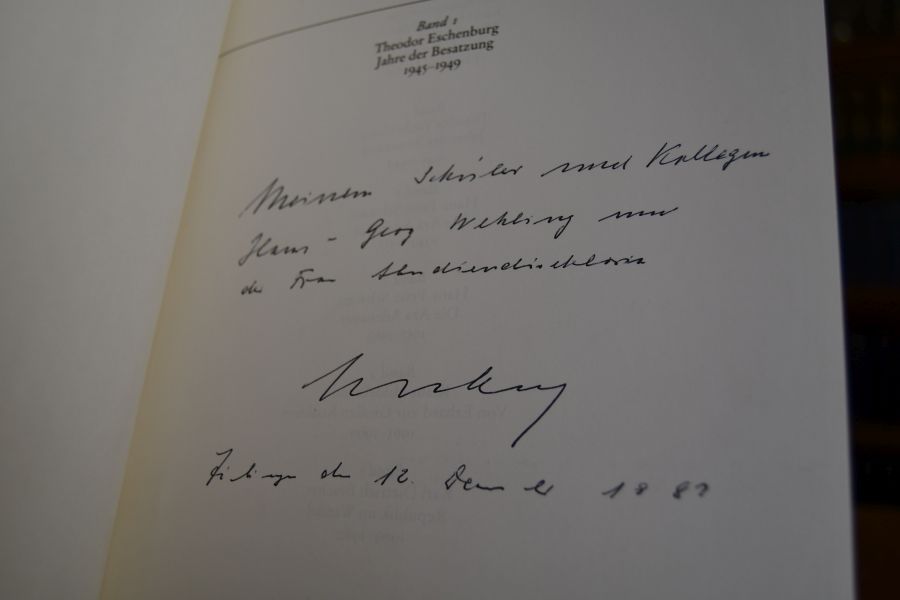 Band 1
Theodor Eschenburg
Jahre der Besatzung
1945–1949
Meinem Schüler und Kollegen
Hans-Georg Wehling und
der Frau Studiendirektorin
Eschenburg
den 12. Dezember 198